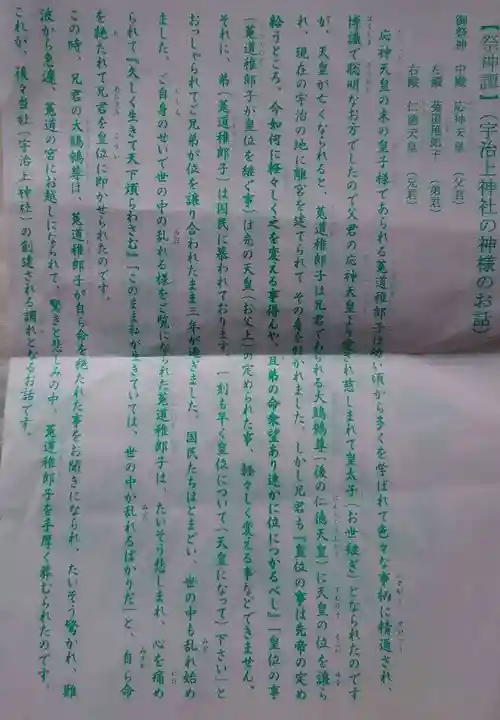 【祭神譚】(宇治上神社の神様のお話)
御祭神 中殿 応神天皇 (父君)
左殿 菟道稚郎子 (弟君)
右殿 仁徳天皇 (兄君)
応神天皇の末の皇子様であられる菟道稚郎子は幼い頃から多くを学ばれて色々な事柄に精通され、
博識で聡明なお方でしたので父君の応神天皇より愛され慈しまれて皇太子(お世継ぎ)となられたのです
が、天皇が亡くなられると、菟道稚郎子は兄君であられる大鷦鷯尊(後の仁徳天皇)に天皇の位を譲ら
れ、現在の宇治の地に離宮を建てられて その意を計がれました。しかし兄君も『皇位の事は先帝の定め
給うところ。今如何に軽々しく之を変える事得んや、且弟の命衆望あり速かに位につかるべし』「皇位の事
(菟道稚郎子が皇位を継ぐ事)は先の天皇(お父上)の定められた事、軽々しく変える事などできません。
それに、弟(菟道稚郎子)は国民に慕われております。一刻も早く皇位について(天皇になって)下さい」と
おっしゃられてご兄弟が位を譲り合われたまま三年が過ぎました。国民たちはとまどい、世の中も乱れ始め
ました。ご自身のせいで世の中の乱れる様をご覧になられた菟道稚郎子は、たいそう悲しまれ、心を痛め
られて『久しく生きて天下煩らわさむ』「このまま私が生きていては、世の中が乱れるばかりだ」と、自ら命
を絶たれて兄君を皇位に即かせられたのです。
この時、兄君の大鷦鷯尊は、菟道稚郎子が自ら命を絶たれた事をお聞きになられ、たいそう驚かれ、難
波から急遽、菟道の宮にお越しになられて、驚きと悲しみの中、菟道稚郎子を手厚く葬むられたのです。
これが、後々当社(宇治上神社)の創建される謂れとなるお話です。